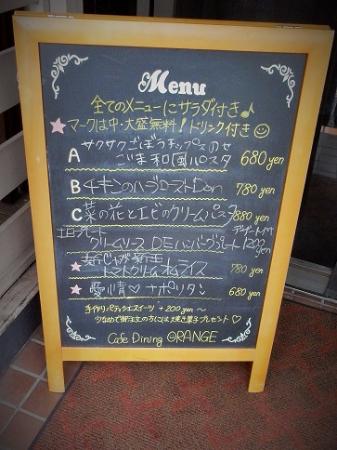 Menu
全てのメニューにサラダ付き♪
★マークは中・大盛無料！ドリンク付き☺
A サクサクごぼうチップスのせ
ごま和風パスタ 680yen
B チキンのハーブロースト Don 780 yen
C 菜の花とエビのクリームパスタ 880 yen
土日プレート デザート付
クリームソース DE ハンバーグプレート 1200 yen
★
トマトクリームオムライス 780 yen
★ 愛情♡ナポリタン 680 yen
手作りパティシエスイーツ +200yen〜
の方には焼き菓子プレゼント♡
Cafe Dining ORANGE